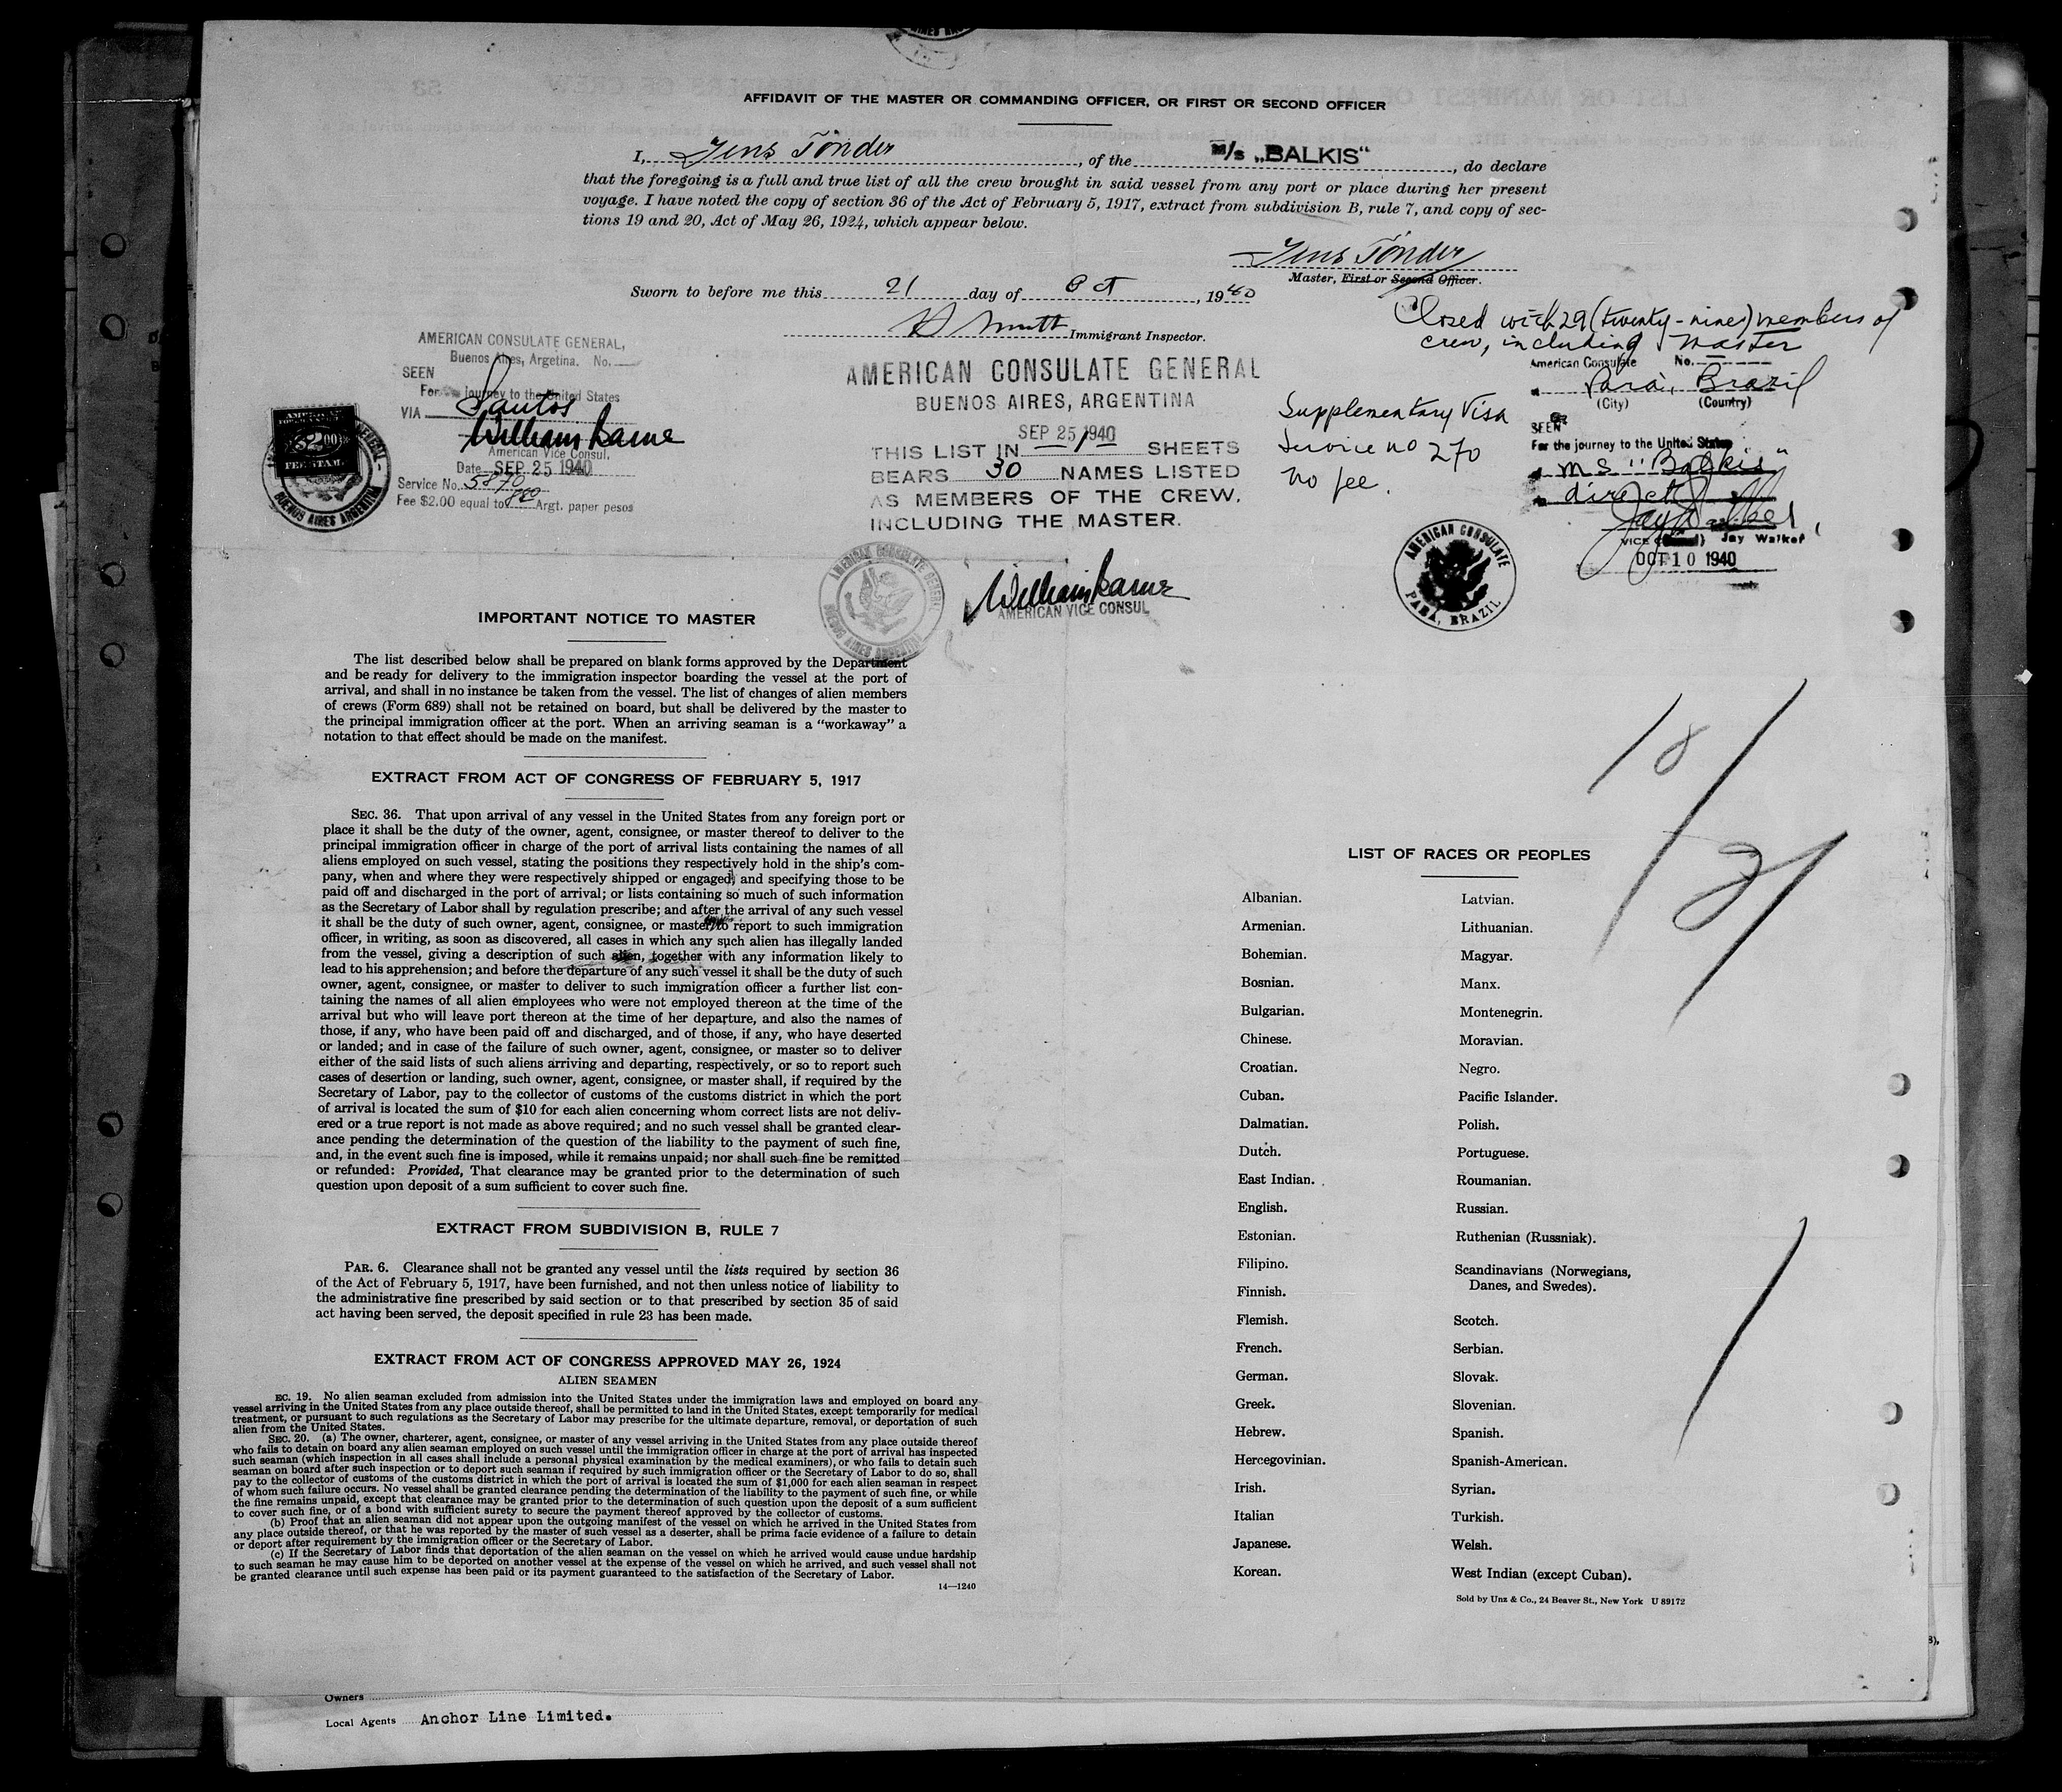 AFFIDAVIT OF THE MASTER OR COMMANDING OFFICER, OR FIRST OR SECOND OFFICER
I, Jens Tönder, of the M/S „BALKIS“, do declare
that the foregoing is a full and true list of all the crew brought in said vessel from any port or place during her present
voyage. I have noted the copy of section 36 of the Act of February 5, 1917, extract from subdivision B, rule 7, and copy of sec-
tions 19 and 20, Act of May 26, 1924, which appear below.
Jens Tönder
Master, First or Second Officer.
Sworn to before me this 21 day of Oct, 1940
Immigrant Inspector.
Closed with 29 (twenty-nine) members of
crew, including Master
AMERICAN CONSULATE GENERAL,
Buenos Aires, Argetina. No.
SEEN
For journey to the United States
VIA Santos
William
American Vice Consul.
Date SEP 25 1940
Service No. 5870
Fee $2.00 equal to 880 Argt. paper pesos
AMERICAN CONSULATE GENERAL
BUENOS AIRES, ARGENTINA
SEP 25 1940
THIS LIST IN 1 SHEETS
BEARS 30 NAMES LISTED
AS MEMBERS OF THE CREW.
INCLUDING THE MASTER.
William
AMERICAN VICE CONSUL
AMERICAN CONSULATE GENERAL
BUENOS AIRES ARGENTINA
Supplementary Visa
Service no 270
no fee.
American Consulate No.
Para, Brazil
(City) (Country)
SEEN
For the journey to the United States
m s "Balkis"
direct
Jay Walker
VICE Jay Walker
OCT 10 1940
AMERICAN CONSULATE
PARA, BRAZIL
IMPORTANT NOTICE TO MASTER
The list described below shall be prepared on blank forms approved by the Department
and be ready for delivery to the immigration inspector boarding the vessel at the port of
arrival, and shall in no instance be taken from the vessel. The list of changes of alien members
of crews (Form 689) shall not be retained on board, but shall be delivered by the master to
the principal immigration officer at the port. When an arriving seaman is a “workaway” a
notation to that effect should be made on the manifest.
EXTRACT FROM ACT OF CONGRESS OF FEBRUARY 5, 1917
SEC. 36. That upon arrival of any vessel in the United States from any foreign port or
place it shall be the duty of the owner, agent, consignee, or master thereof to deliver to the
principal immigration officer in charge of the port of arrival lists containing the names of all
aliens employed on such vessel, stating the positions they respectively hold in the ship's com-
pany, when and where they were respectively shipped or engaged, and specifying those to be
paid off and discharged in the port of arrival; or lists containing so much of such information
as the Secretary of Labor shall by regulation prescribe; and after the arrival of any such vessel
it shall be the duty of such owner, agent, consignee, or master, to report to such immigration
officer, in writing, as soon as discovered, all cases in which any such alien has illegally landed
from the vessel, giving a description of such alien, together with any information likely to
lead to his apprehension; and before the departure of any such vessel it shall be the duty of such
owner, agent, consignee, or master to deliver to such immigration officer a further list con-
taining the names of all alien employees who were not employed thereon at the time of the
arrival but who will leave port thereon at the time of her departure, and also the names of
those, if any, who have been paid off and discharged, and of those, if any, who have deserted
or landed; and in case of the failure of such owner, agent, consignee, or master so to deliver
either of the said lists of such aliens arriving and departing, respectively, or so to report such
cases of desertion or landing, such owner, agent, consignee, or master shall, if required by the
Secretary of Labor, pay to the collector of customs of the customs district in which the port
of arrival is located the sum of $10 for each alien concerning whom correct lists are not deliv-
ered or a true report is not made as above required; and no such vessel shall be granted clear-
ance pending the determination of the question of the liability to the payment of such fine,
and, in the event such fine is imposed, while it remains unpaid; nor shall such fine be remitted
or refunded: Provided, That clearance may be granted prior to the determination of such
question upon deposit of a sum sufficient to cover such fine.
EXTRACT FROM SUBDIVISION B, RULE 7
PAR. 6. Clearance shall not be granted any vessel until the lists required by section 36
of the Act of February 5, 1917, have been furnished, and not then unless notice of liability to
the administrative fine prescribed by said section or to that prescribed by section 35 of said
act having been served, the deposit specified in rule 23 has been made.
EXTRACT FROM ACT OF CONGRESS APPROVED MAY 26, 1924
ALIEN SEAMEN
EC. 19. No alien seaman excluded from admission into the United States under the immigration laws and employed on board any
vessel arriving in the United States from any place outside thereof, shall be permitted to land in the United States, except temporarily for medical
treatment, or pursuant to such regulations as the Secretary of Labor may prescribe for the ultimate departure, removal, or deportation of such
alien from the United States.
SEC. 20. (a) The owner, charterer, agent, consignee, or master of any vessel arriving in the United States from any place outside thereof
who fails to detain on board any alien seaman employed on such vessel until the immigration officer in charge at the port of arrival has inspected
such seaman (which inspection in all cases shall include a personal physical examination by the medical examiners), or who fails to detain such
seaman on board after such inspection or to deport such seaman if required by such immigration officer or the Secretary of Labor to do so, shall
pay to the collector of customs of the customs district in which the port of arrival is located the sum of $1,000 for each alien seaman in respect
of whom such failure occurs. No vessel shall be granted clearance pending the determination of the liability to the payment of such fine, or while
the fine remains unpaid, except that clearance may be granted prior to the determination of such question upon the deposit of a sum sufficient
to cover such fine, or of a bond with sufficient surety to secure the payment thereof approved by the collector of customs.
(b) Proof that an alien seaman did not appear upon the outgoing manifest of the vessel on which he arrived in the United States from
any place outside thereof, or that he was reported by the master of such vessel as a deserter, shall be prima facie evidence of a failure to detain
or deport after requirement by the immigration officer or the Secretary of Labor.
(c) If the Secretary of Labor finds that deportation of the alien seaman on the vessel on which he arrived would cause undue hardship
to such seaman he may cause him to be deported on another vessel at the expense of the vessel on which he arrived, and such vessel shall not
be granted clearance until such expense has been paid or its payment guaranteed to the satisfaction of the Secretary of Labor.
14—1240
LIST OF RACES OR PEOPLES
Albanian.
Armenian.
Bohemian.
Bosnian.
Bulgarian.
Chinese.
Croatian.
Cuban.
Dalmatian.
Dutch.
East Indian.
English.
Estonian.
Filipino.
Finnish.
Flemish.
French.
German.
Greek.
Hebrew.
Hercegovinian.
Irish.
Italian
Japanese.
Korean.
Latvian.
Lithuanian.
Magyar.
Manx.
Montenegrin.
Moravian.
Negro.
Pacific Islander.
Polish.
Portuguese.
Roumanian.
Russian.
Ruthenian (Russniak).
Scandinavians (Norwegians,
Danes, and Swedes).
Scotch.
Serbian.
Slovak.
Slovenian.
Spanish.
Spanish-American.
Syrian.
Turkish.
Welsh.
West Indian (except Cuban).
Sold by Unz & Co., 24 Beaver St., New York U 89172
Owners
Local Agents Anchor Line Limited.